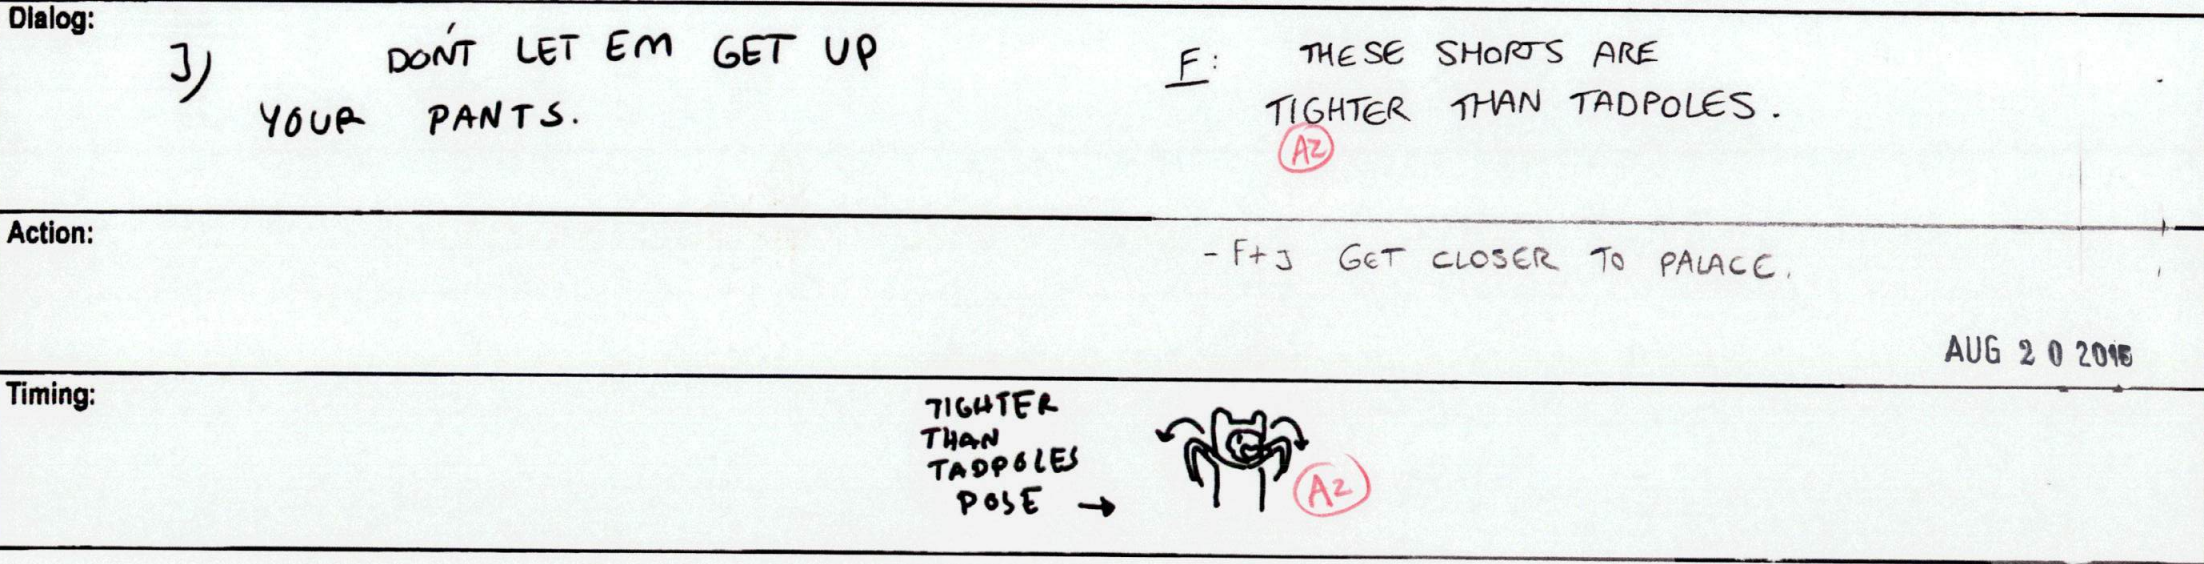 Dialog:
J) DON'T LET EM GET UP
YOUR PANTS.
F: THESE SHORTS ARE
TIGHTER THAN TADPOLES.
A2
Action:
- F+J GET CLOSER TO PALACE.
AUG 20 2015
Timing:
TIGHTER
THAN
TADPOLES
POSE →
A2